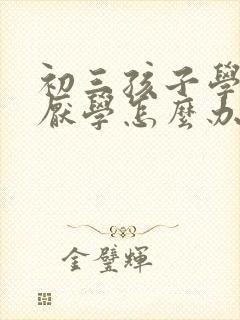 初三孩子學
厭學怎麼办
金璧輝